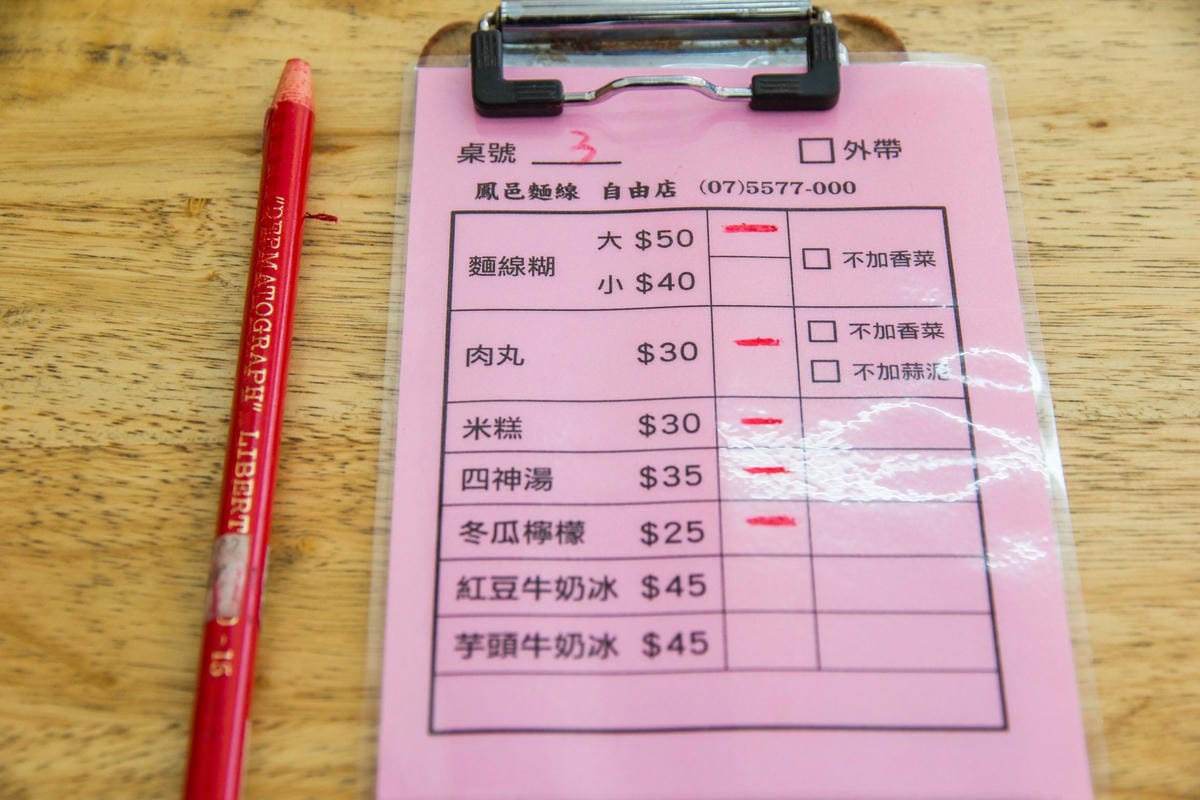 桌號 3 外帶
鳳邑麵線 自由店 (07)5577-000
麵線糊 大 $50
小 $40
不加香菜
肉丸 $30
不加香菜
不加蒜泥
米糕 $30
四神湯 $35
冬瓜檸檬 $25
紅豆牛奶冰 $45
芋頭牛奶冰 $45
"DERMATOGRAPH" LIBERT
- 15